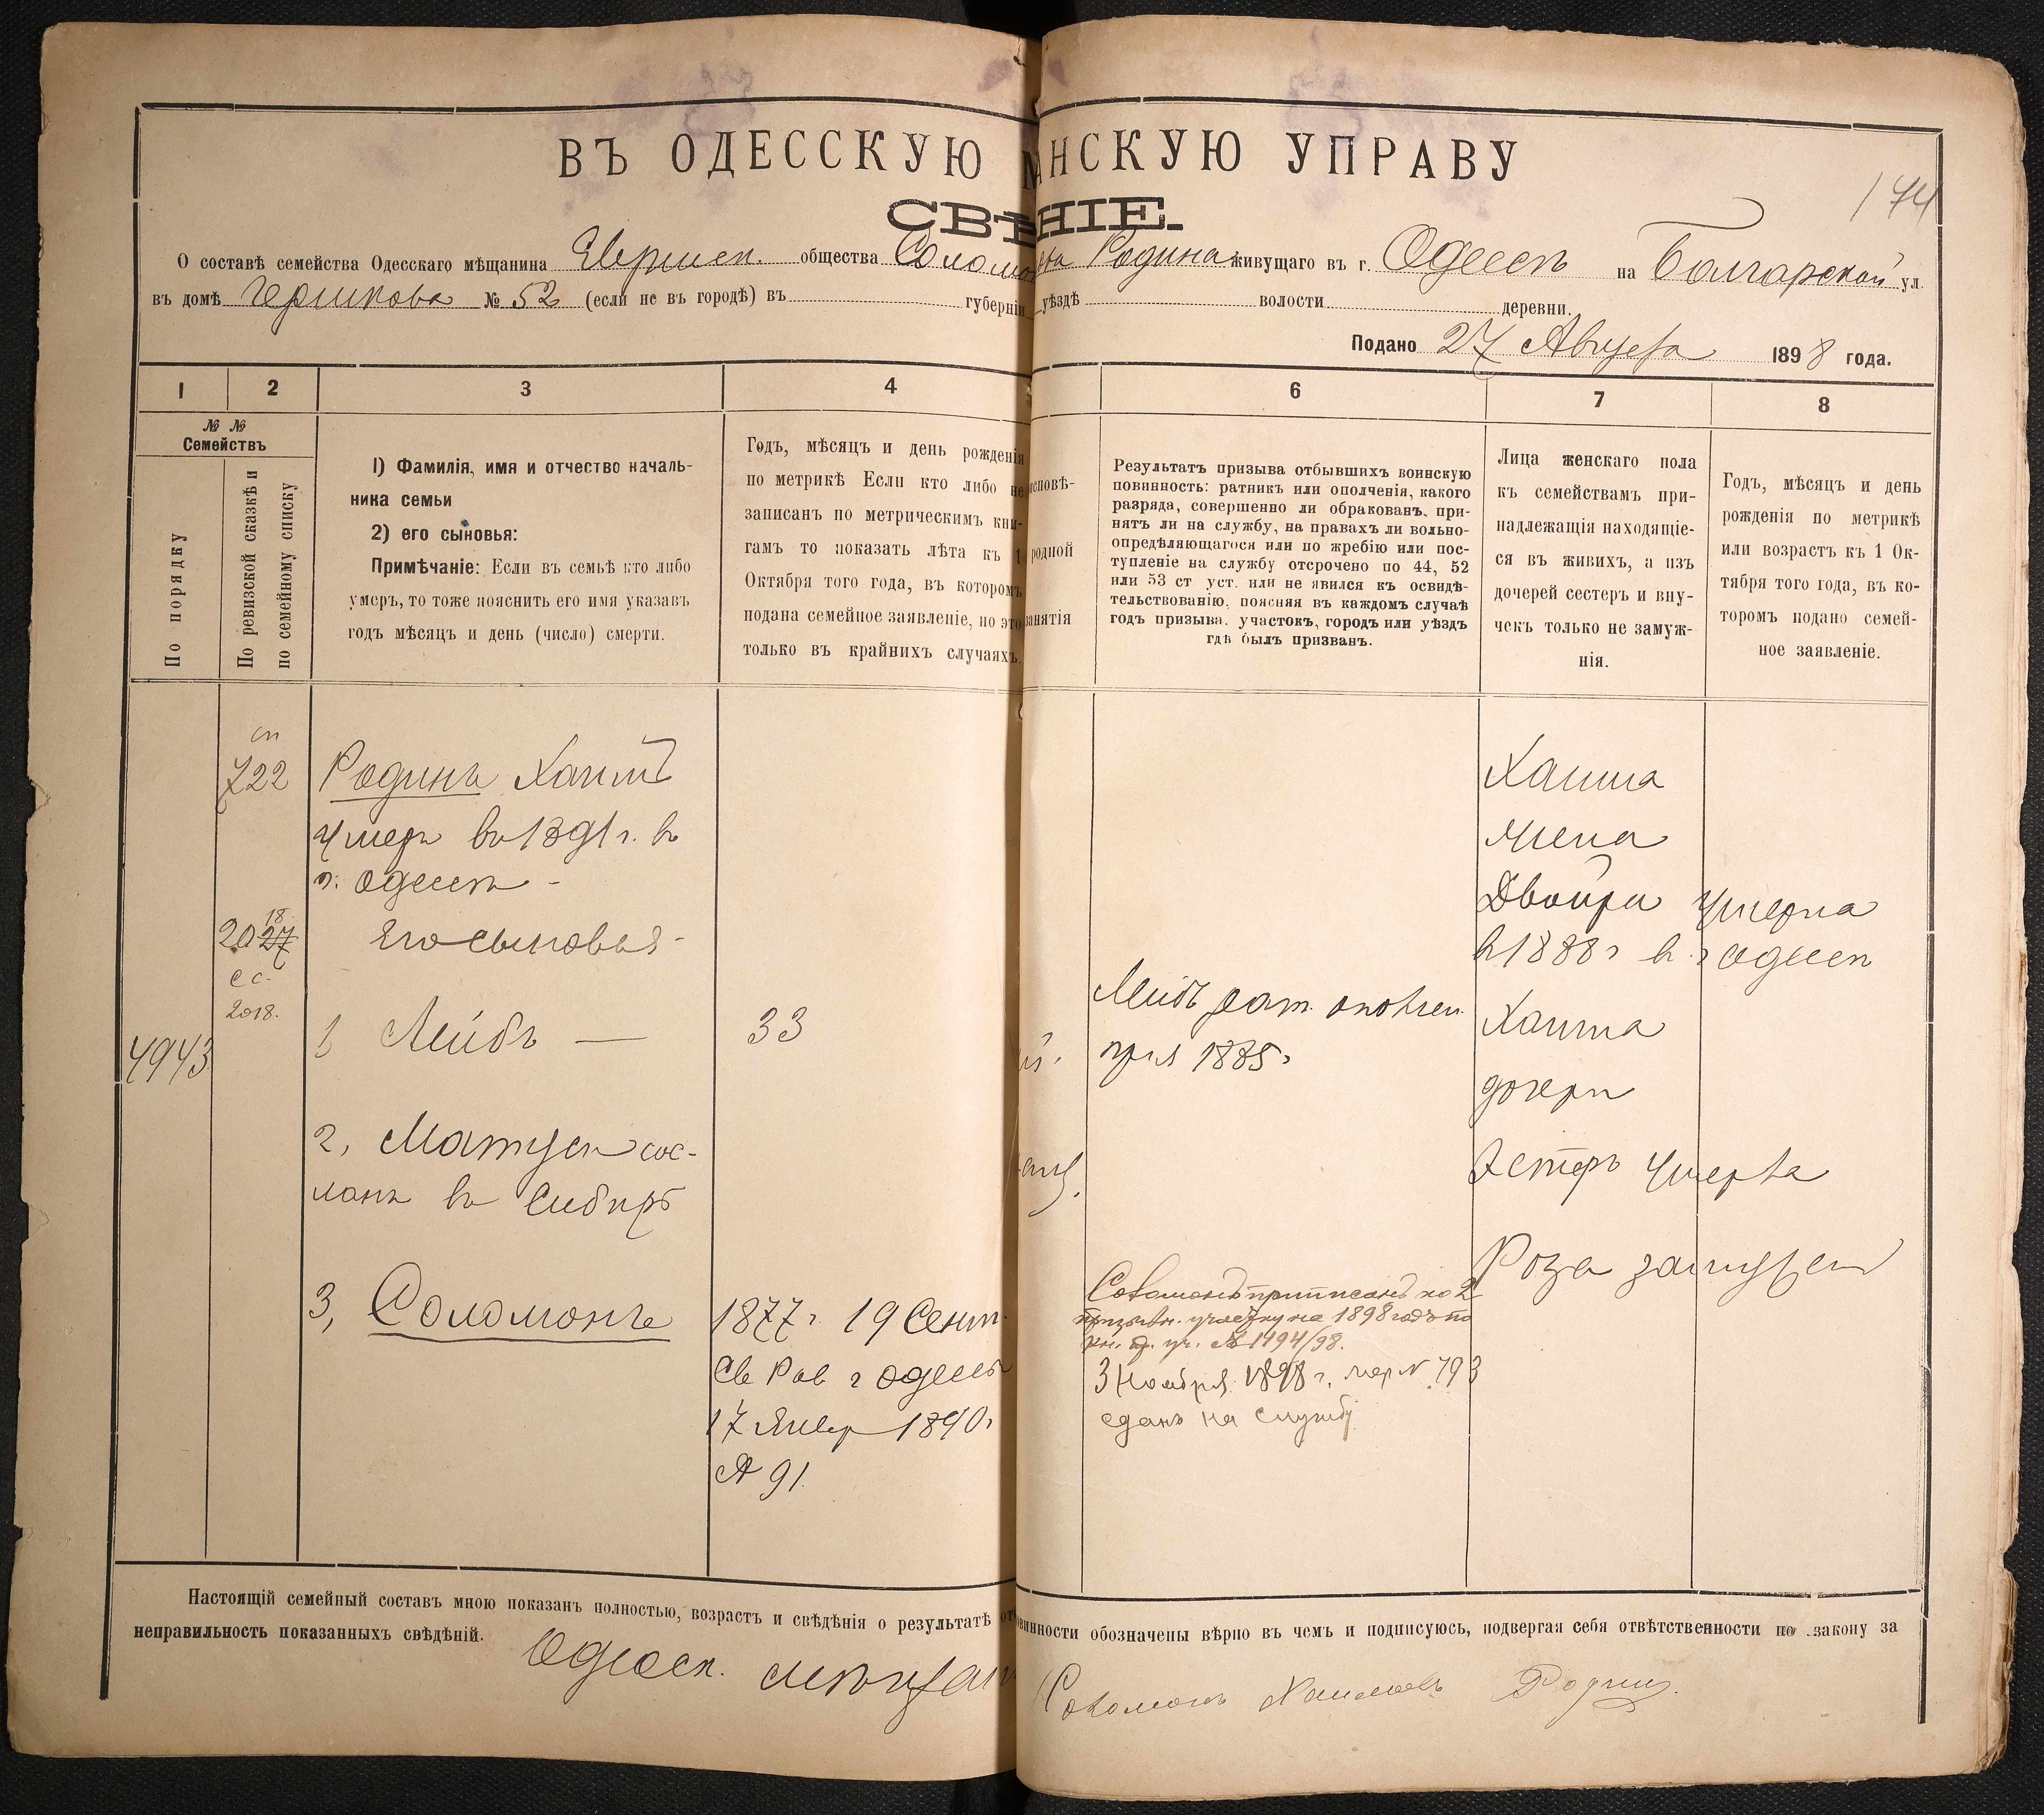 ВЪ ОДЕССКУЮ НСКУЮ УПРАВУ
СВѢ НІЕ.
144
О составѣ семейства Одесскаго мѣщанина Еврейск. общества Соломона Родина живущаго въ г. Одессѣ на Болгарской ул.
въ домѣ Гершкова № 52 (если не въ городѣ) въ губерніи уѣздѣ волости деревни.
Подано 27 Августа 1898 года.
1 2 3 4 6 7 8
№ №
Семействъ
По порядку
По ревизской сказкѣ и
по семейному списку
1) Фамилія, имя и отчество началь-
ника семьи
2) его сыновья:
Примѣчаніе: Если въ семьѣ кто либо
умеръ, то тоже пояснить его имя указавъ
годъ мѣсяцъ и день (число) смерти.
Годъ, мѣсяцъ и день рожденія
по метрикѣ Если кто либо не
записанъ по метрическимъ кни-
гамъ то показать лѣта къ 1
Октября того года, въ которомъ
подана семейное заявленіе, но это
только въ крайнихъ случаяхъ.
исповѣ-
родной
занятія
Результатъ призыва отбывшихъ воинскую
повинность: ратникъ или ополченія, какого
разряда, совершенно ли обракованъ, при-
нятъ ли на службу, на правахъ ли вольно-
опредѣляющагося или по жребію или пос-
тупленіе на службу отсрочено по 44, 52
или 53 ст уст. или не явился къ освидѣ-
тельствованію, поясняя въ каждомъ случаѣ
годъ призыва, участокъ, городъ или уѣздъ
гдѣ былъ призванъ.
Лица женскаго пола
къ семействамъ при-
надлежащія находящіе-
ся въ живихъ, а изъ
дочерей сестеръ и вну-
чекъ только не замуж-
нія.
Годъ, мѣсяцъ и день
рожденія по метрикѣ
или возрастъ къ 1 Ок-
тября того года, въ ко-
торомъ подано семей-
ное заявленіе.
сп
722
2027
18
с с.
2018.
4943
Родинъ Хаимъ
умеръ въ 1891 г. въ
г. Одессѣ -
Его сыновья -
1 Лейбъ — 33
2, Матусъ сос-
ланъ въ Сибирь
3, Соломонъ
1877 г. 19 Сент.
Св Рав г Одессы
17 Январ 1890 г
№ 91
Лейбъ рат. ополчен.
приз 1885 г
Соломонъ приписанъ ко 2
призывн. участку на 1898 годъ по
№ 1494/98.
3 Ноября 1898 г. жер № 793
сданъ на службу
Хаима
жена
Двойра умерла
въ 1888 г въ г Одессѣ
Хаима
дочери
Эстеръ умерла
Роза замужем
Настоящій семейный составъ мною показанъ полностью, возрастъ и свѣдѣнія о результатѣ от винности обозначены вѣрно въ чемъ и подписуюсь, подвергая себя отвѣтственности по закону за
неправильность показанныхъ свѣдѣній.
Одесск. мѣщан
Соломонъ Хаимовъ Родин.